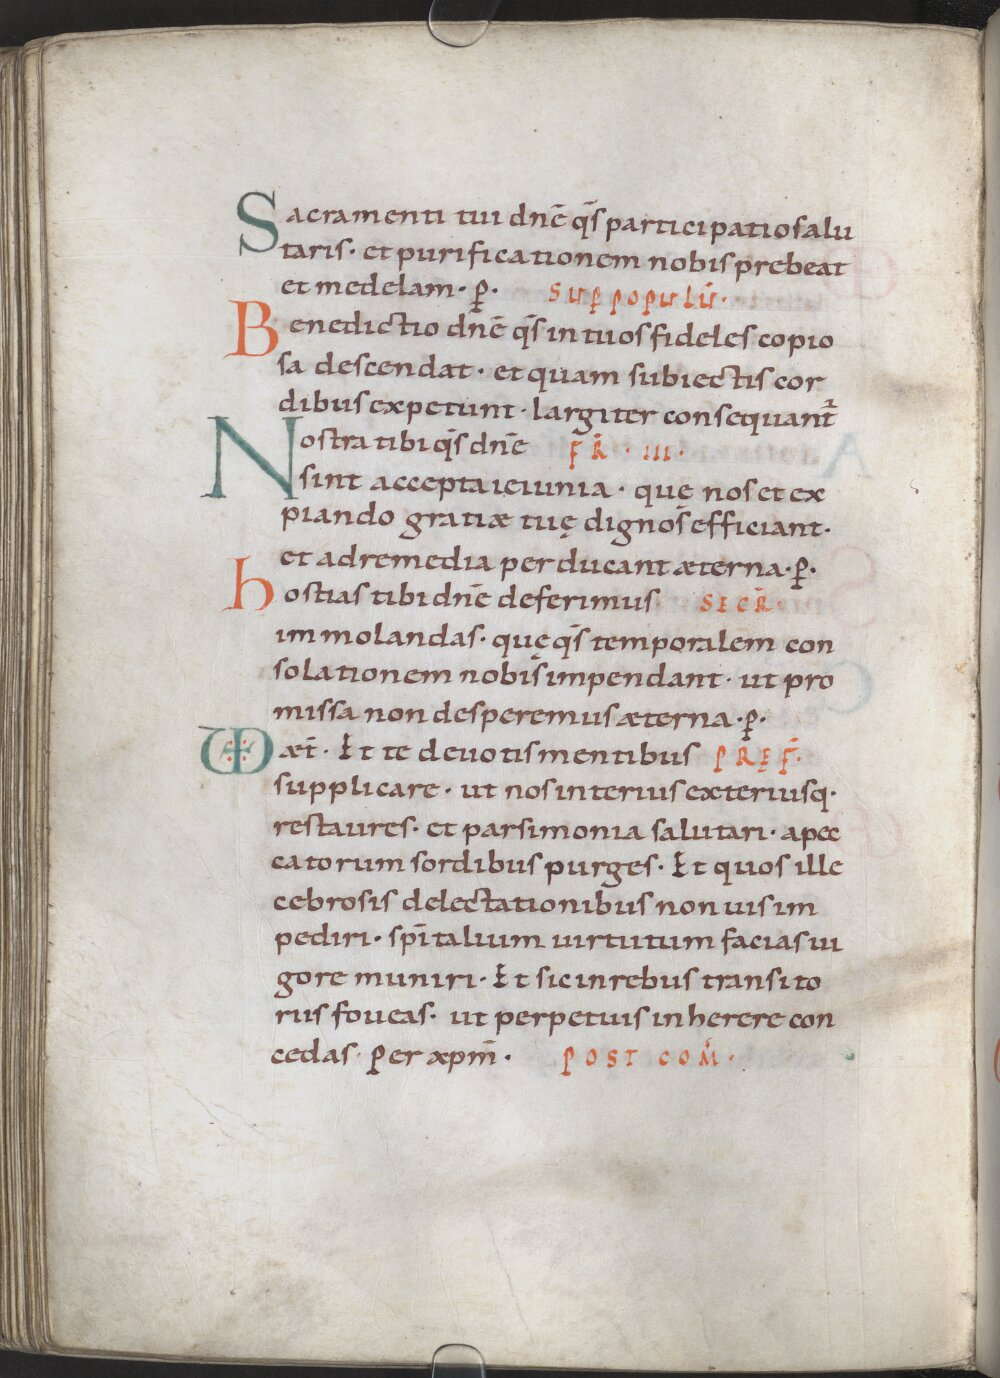 Sacramenti tui dnē q̄s participatio salu
taris · et purificationem nobis prebeat
et medelam · p̱ · SUP̱ POPULŪ ·
Benedictio dnē q̄s in tuos fideles copio
sa descendat · et quam subiectis cor
dibus expetunt · largiter consequant᷑
Nostra tibi q̄s dnē FR̄ · III ·
sint accepta ieiunia · quę nos et ex
piando gratiæ tuę dignos efficiant ·
et ad remedia perducant æterna · p̱ ·
hostias tibi dnē deferimus SECR̄ ·
immolandas · quę q̄s temporalem con
solationem nobis impendant · ut pro
missa non desperemus æterna · p̱ ·
VD æt̄ · Et te deuotis mentibus PRĘF̄ ·
supplicare · ut nos interius exteriusq·
restaures · et parsimonia salutari · a pec
catorum sordibus purges · Et quos ille
cebrosis delectationibus non uis im
pediri · sp̄italium uirtutum facias ui
gore muniri · Et sic in rebus transito
riis foueas · ut perpetuis inherere con
cedas · p̱er æpm̄ · POST COM̄ ·